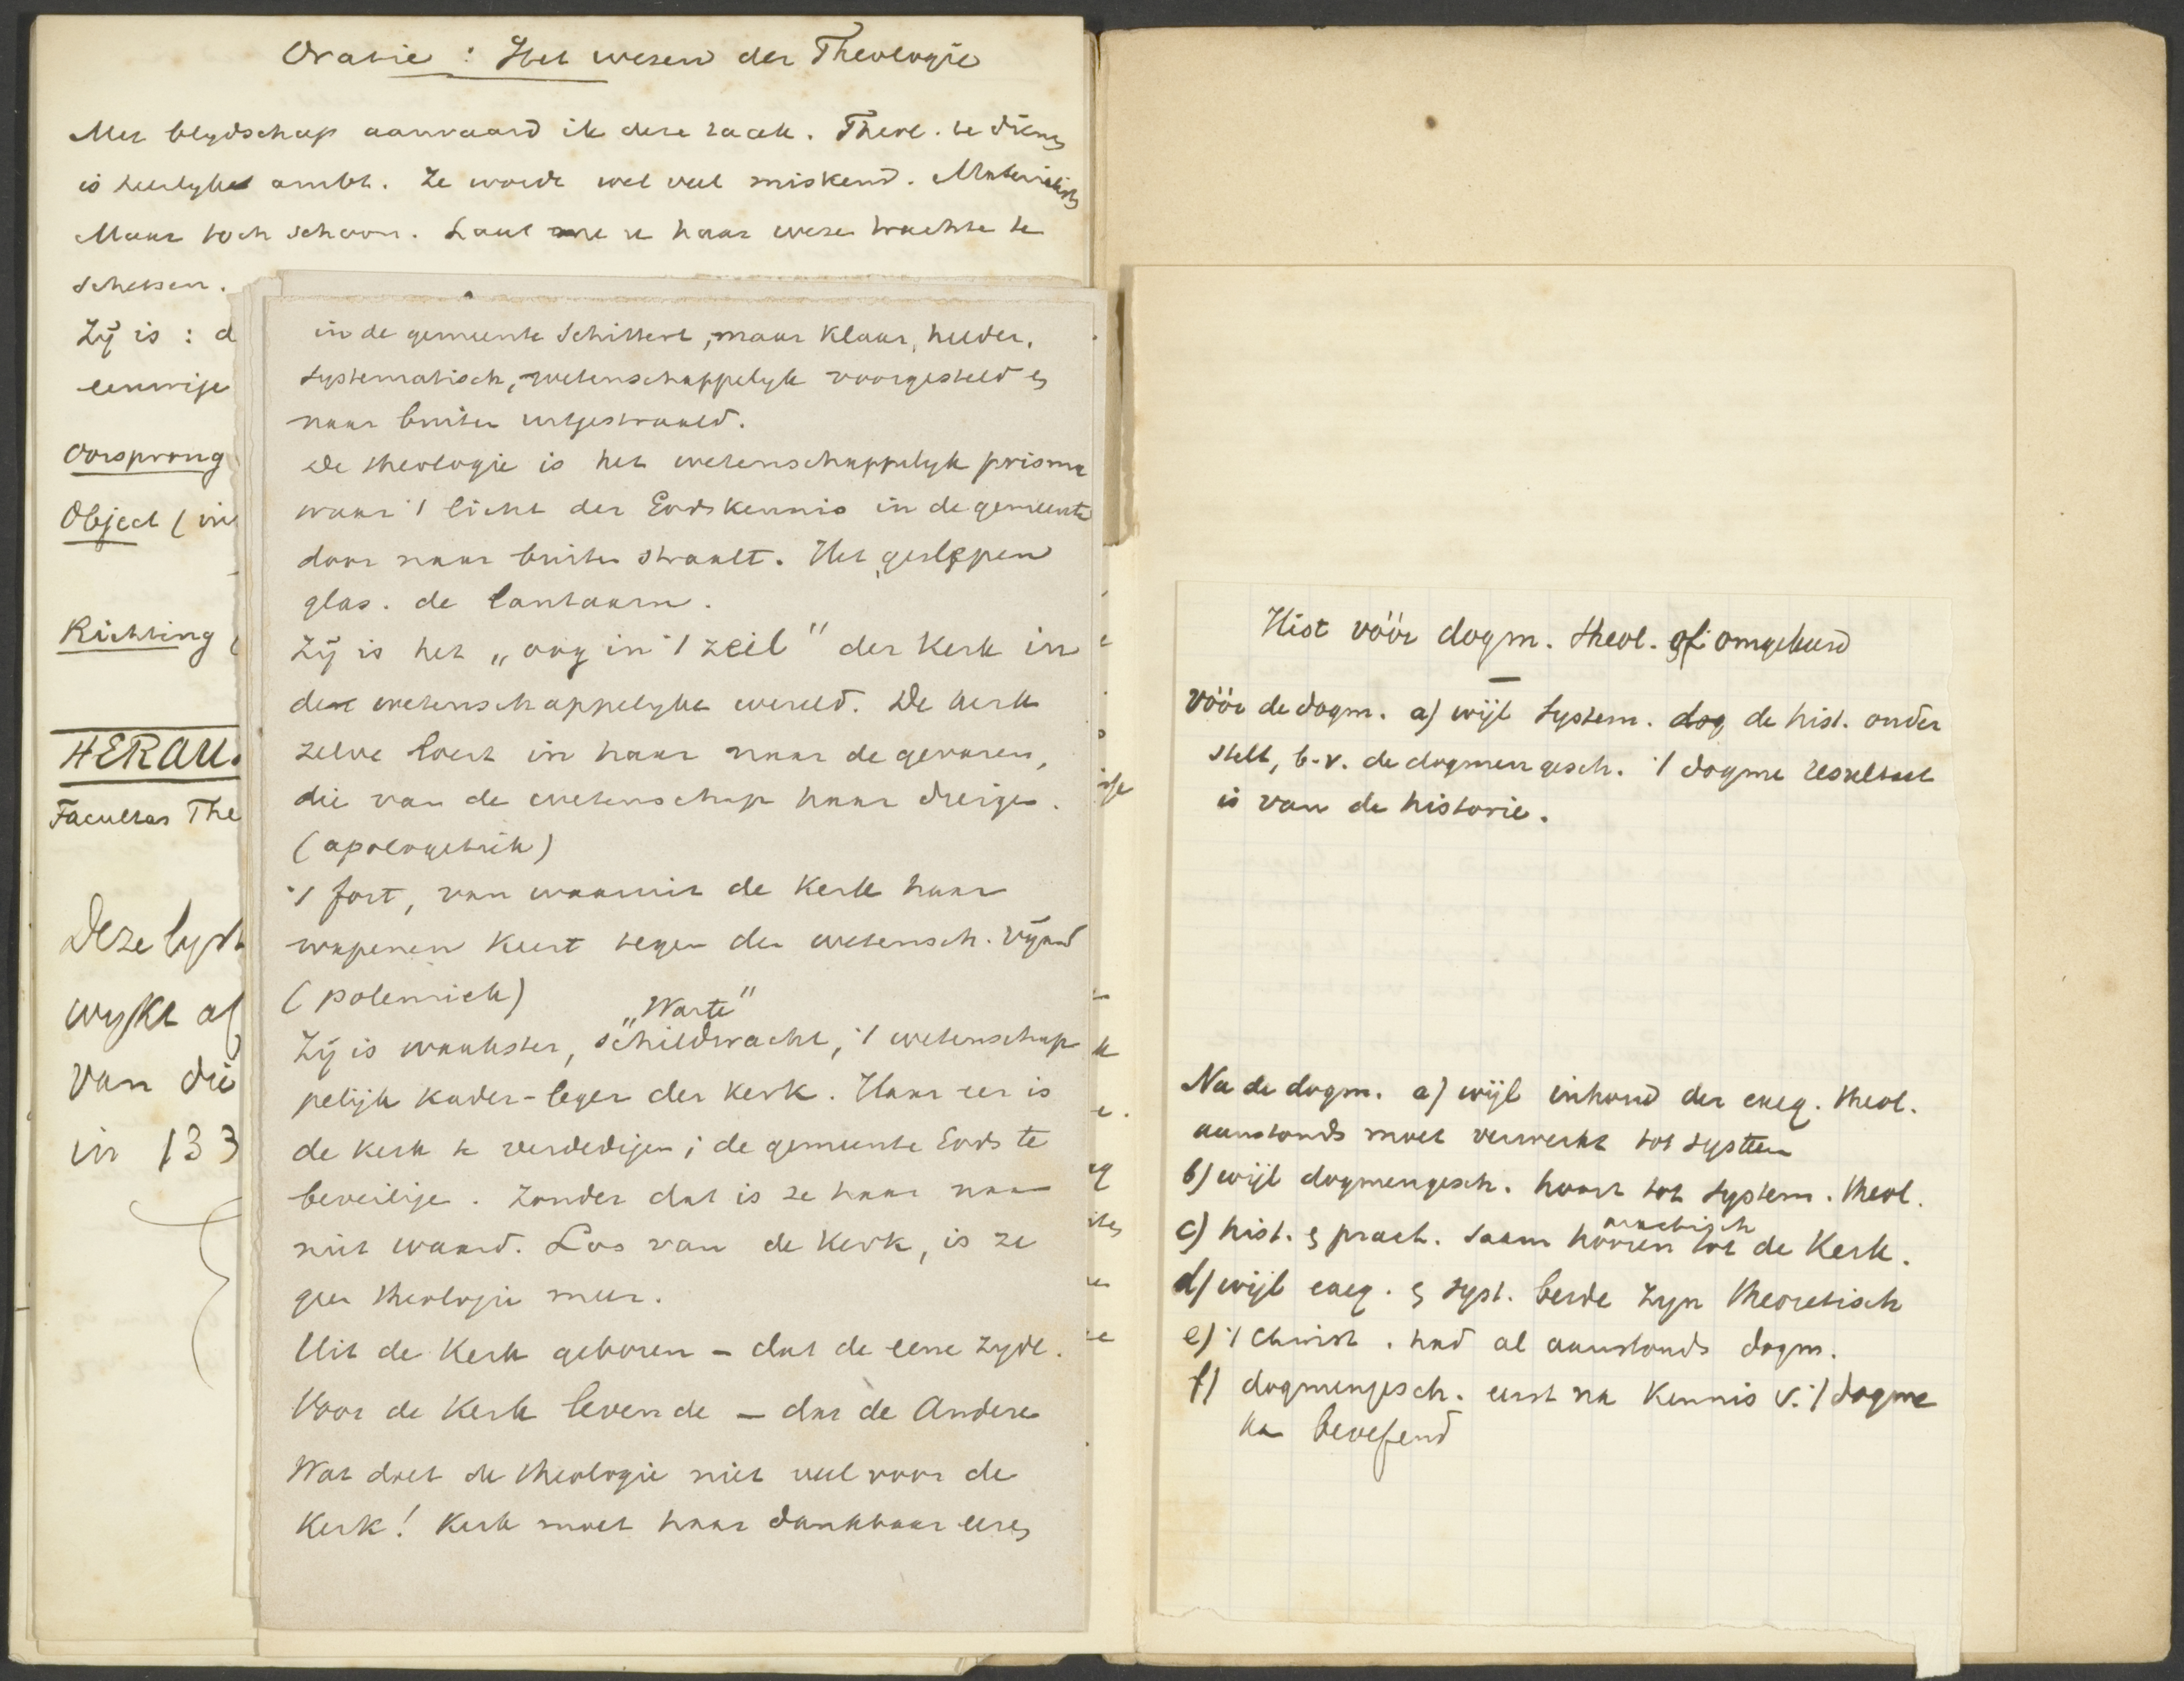 Oratie : Het wezen der Theologie
Met blydschap aanvaard ik deze taak. Theol. te dienen
is heerlyke ambt. Ze wordt wel veel miskend. Materialisten
Maar toch schoon. Laat me u haar wezen trachten te
schetsen.
Zij is : d
eenwige
Oorsprong
Object ( in
Richting (
HERAU.
Facultas The
Deze lyst
wykt af
van die
in 133
in de gemeente schittert, maar klaar, helder,
systematisch, wetenschappelyk voorgesteld en
naar buiten uitgestraald.
De theologie is het wetenschappelyk prisma
waar 't licht der Godskennis in de gemeente
door naar buiten straalt. Het geslepen
glas. de lantaarn.
Zij is het „oog in 't zeil" der Kerk in
de wetenschappelyke wereld. De kerk
zelve loert in haar naar de gevaren,
die van de wetenschap haar dreigen.
(apologetiek)
't fort, van waaruit de Kerk haar
wapenen keert tegen den wetensch. vijand
(polemiek)
„Warte"
Zij is waakster, schildwacht, 't wetenschap
pelijk kader-leger der kerk. Haar eer is
de kerk te verdedigen; de gemeente Gods te
beveiligen. Zonder dat is ze haar naam
niet waard. Los van de Kerk, is ze
geen theologie meer.
Uit de Kerk geboren – dat de eene zyde.
Voor de Kerk levende – dat de andere
Wat doet de theologie niet veel voor de
Kerk! Kerk moet haar dankbaar eeren
Hist vóór dogm. theol. of omgekeerd
Vóór de dogm. a) wijl system. de hist. onder
stelt, b.v. de dogmengesch. 't dogme resultaat
is van de historie.
Na de dogm. a) wijl inhoud der exeg. theol.
aanstonds moet verwerkt tot systeem
b) wijl dogmengesch. hoort tot system. theol.
practisch
c) hist. en pract. saam hooren tot de Kerk.
d) wijl exeg. en syst. beide zyn theoretisch
e) 't Christ. had al aanstonds dogm.
f) dogmengesch. eerst na kennis v. 't dogme
kan beoefend